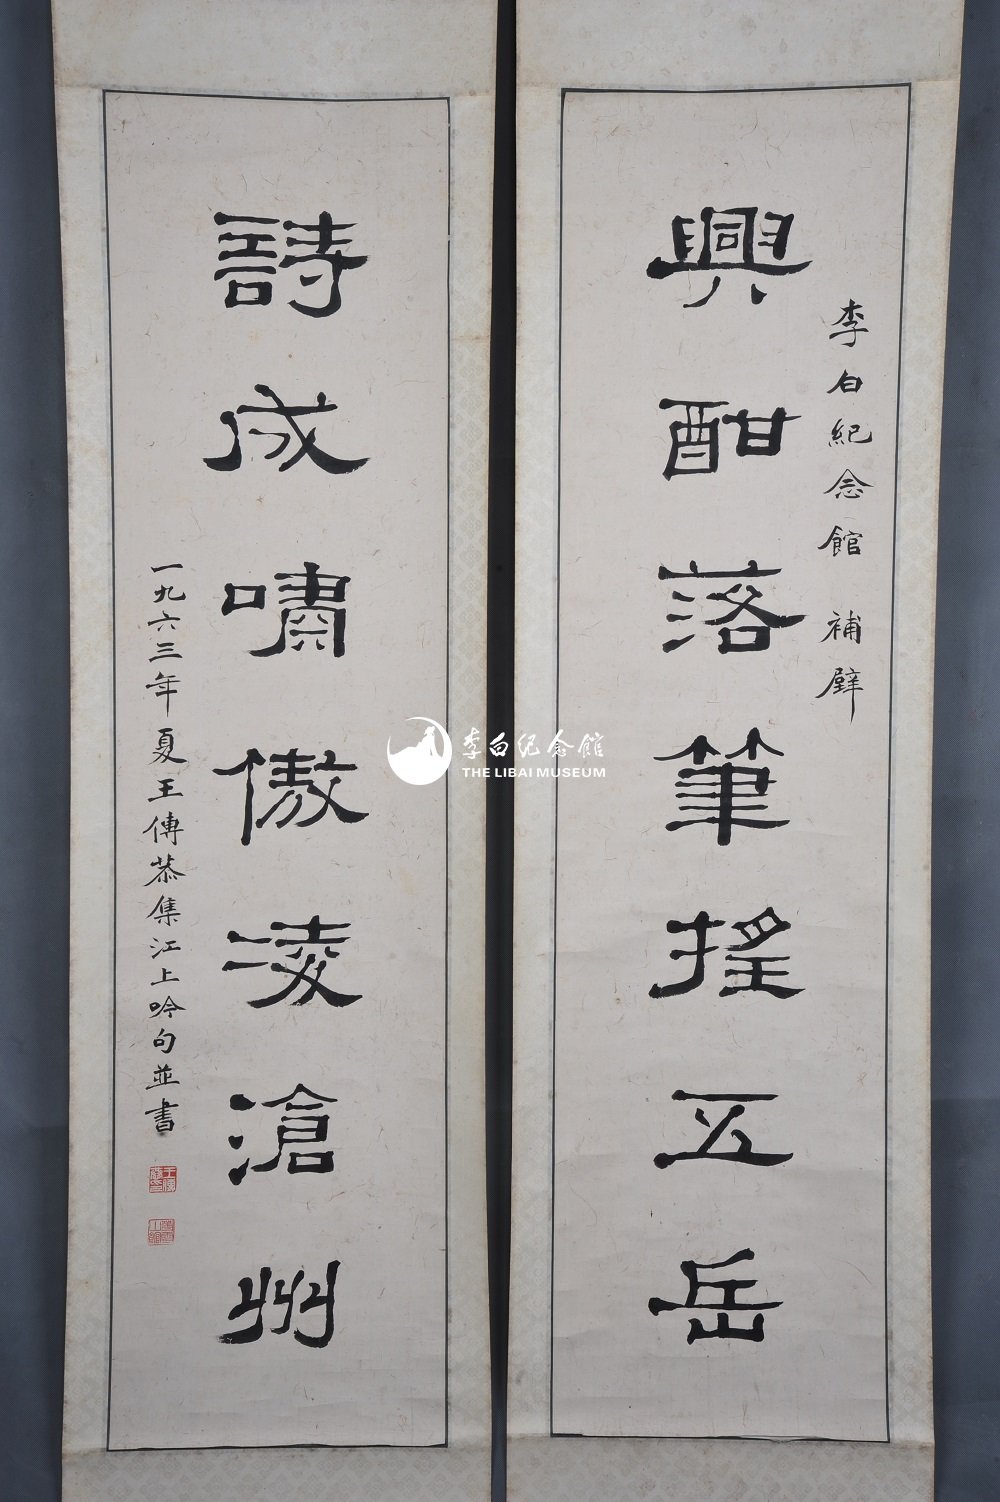 李白紀念館 補壁
興酣落筆搖五岳
詩成嘯傲凌滄州
一九六三年夏王傳恭集江上吟句並書
李白纪念館
THE LIBAI MUSEUM